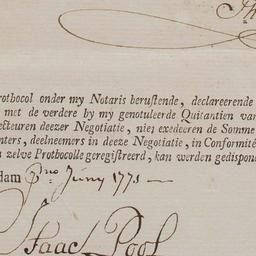 Th
rothocol onder my Notaris berustende, declareerende
met de verdere by my genotuleerde Quitantien van
ecteuren deezer Negotiatie, niet exedeeren de Somme
nters, deelneemers in deeze Negotiatie, in Conformité
zelve Prothocolle geregistreerd, kan werden gedispone
dam pmo Juny 1771
Isaac Pool